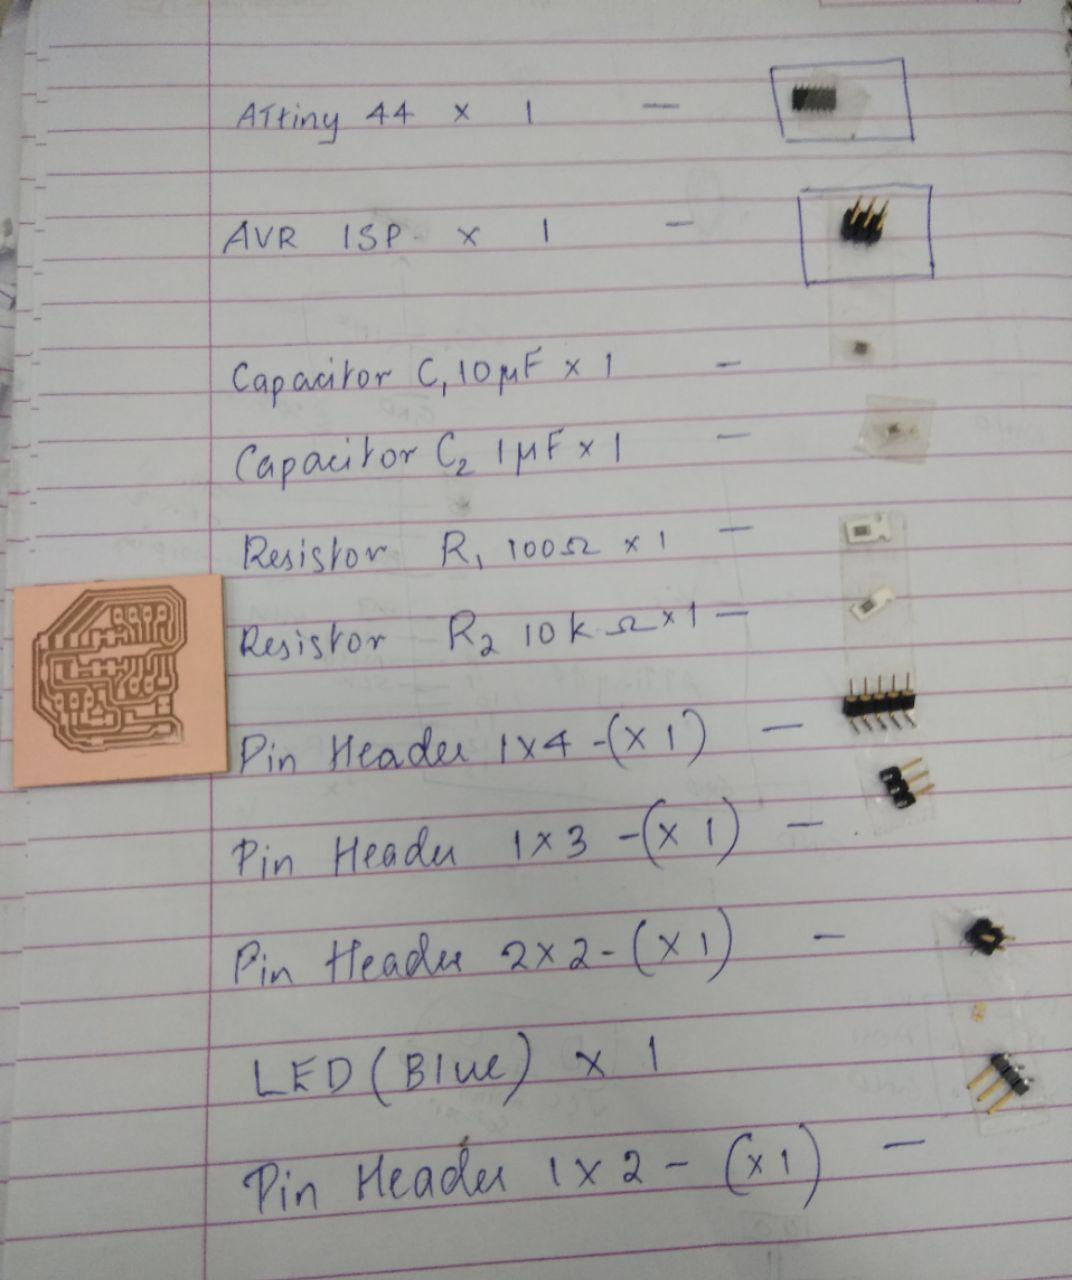 ATtiny 44 x 1 —
AVR ISP x 1 —
Capacitor C1 10 μF x 1 —
Capacitor C2 1 μF x 1 —
Resistor R1 100Ω x 1 —
Resistor R2 10 k Ω x 1 —
Pin Header 1x4 - (x 1) —
Pin Header 1 x 3 - (x 1) —
Pin Header 2 x 2 - (x 1) —
LED (Blue) x 1
Pin Header 1 x 2 - (x 1) —